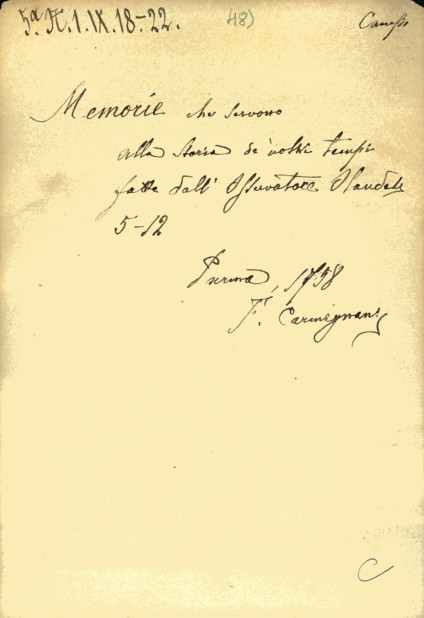 5ª H. 1. IX. 18-22. 48)
Memorie che servono
alla storia de' nostri tempi
fatte dall' Osservatore Olandese
5-12
Parma, 1758
F. Carmignani
C